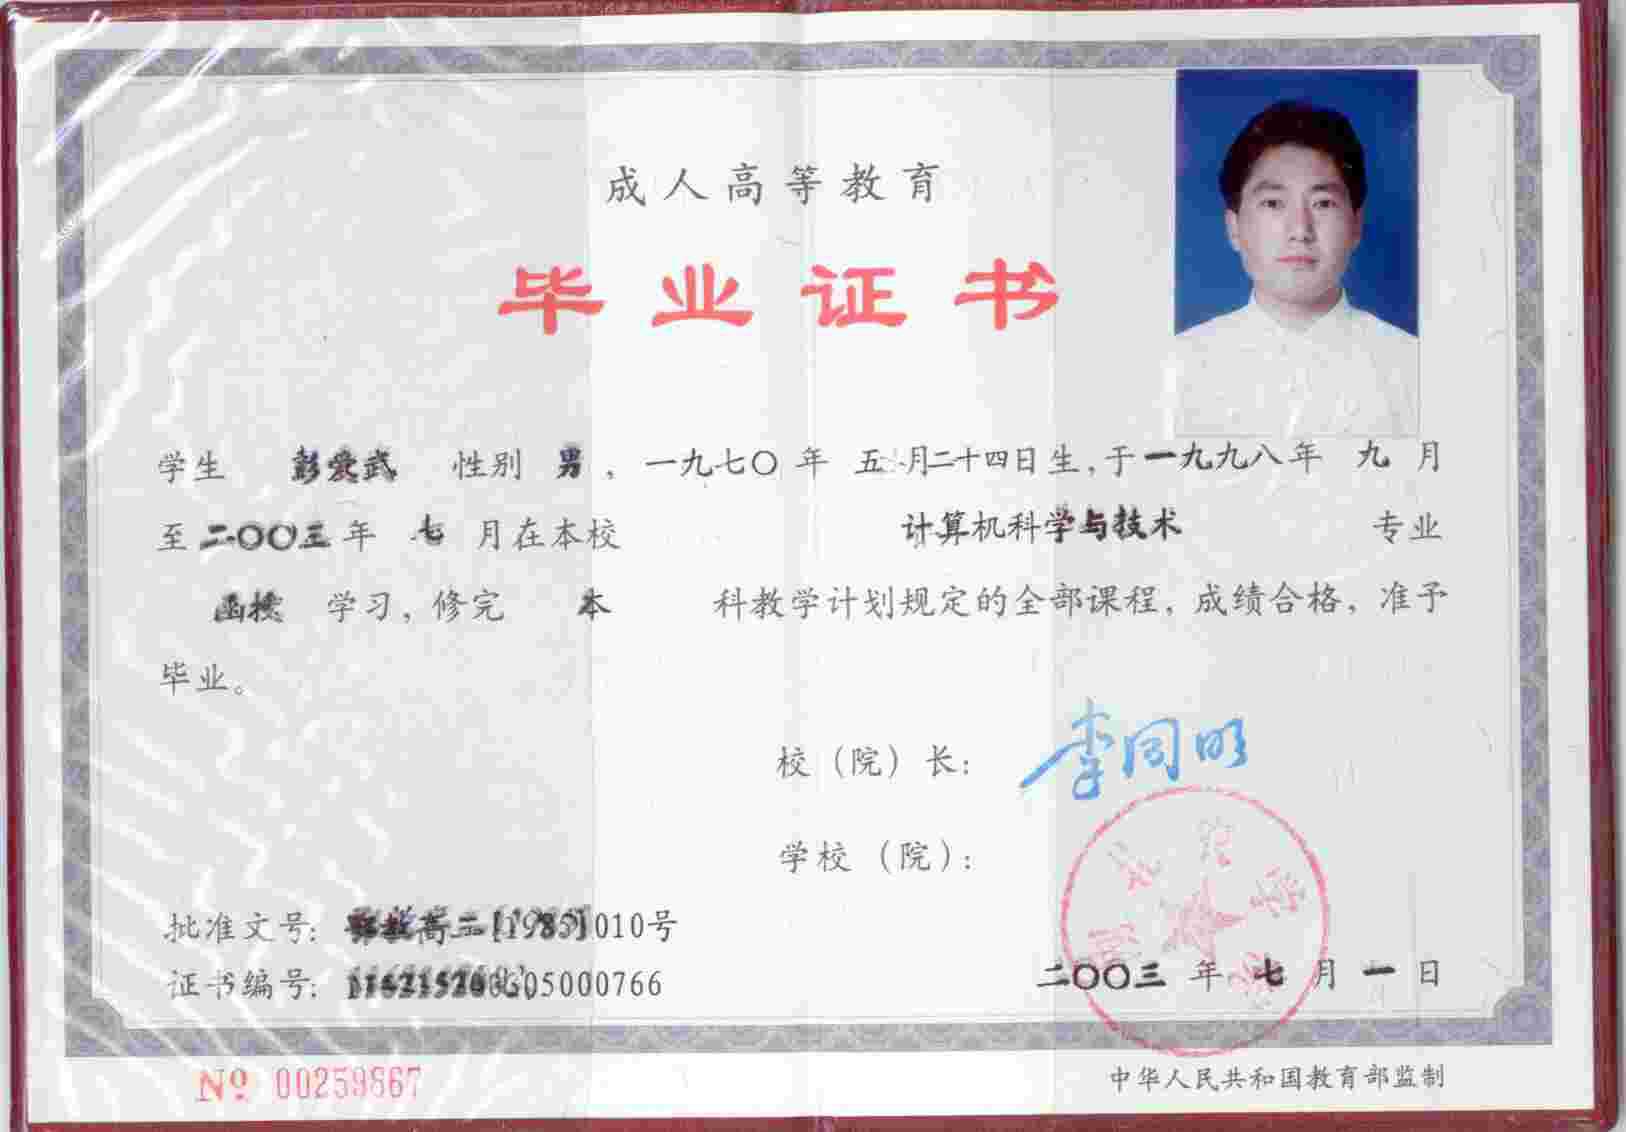 成人高等教育
毕业证书
学生 彭爱武 性别 男，一九七〇年 五月二十四日生，于一九九八年 九 月
至二〇〇三年 七 月在本校 计算机科学与技术 专业
函授 学习，修完 本 科教学计划规定的全部课程，成绩合格，准予
毕业。
校（院）长： 李同明
学校（院）：
批准文号： 高二[1985]010号
证书编号： 05000766
二〇〇三 年 七 月 一 日
№ 00259867
中华人民共和国教育部监制